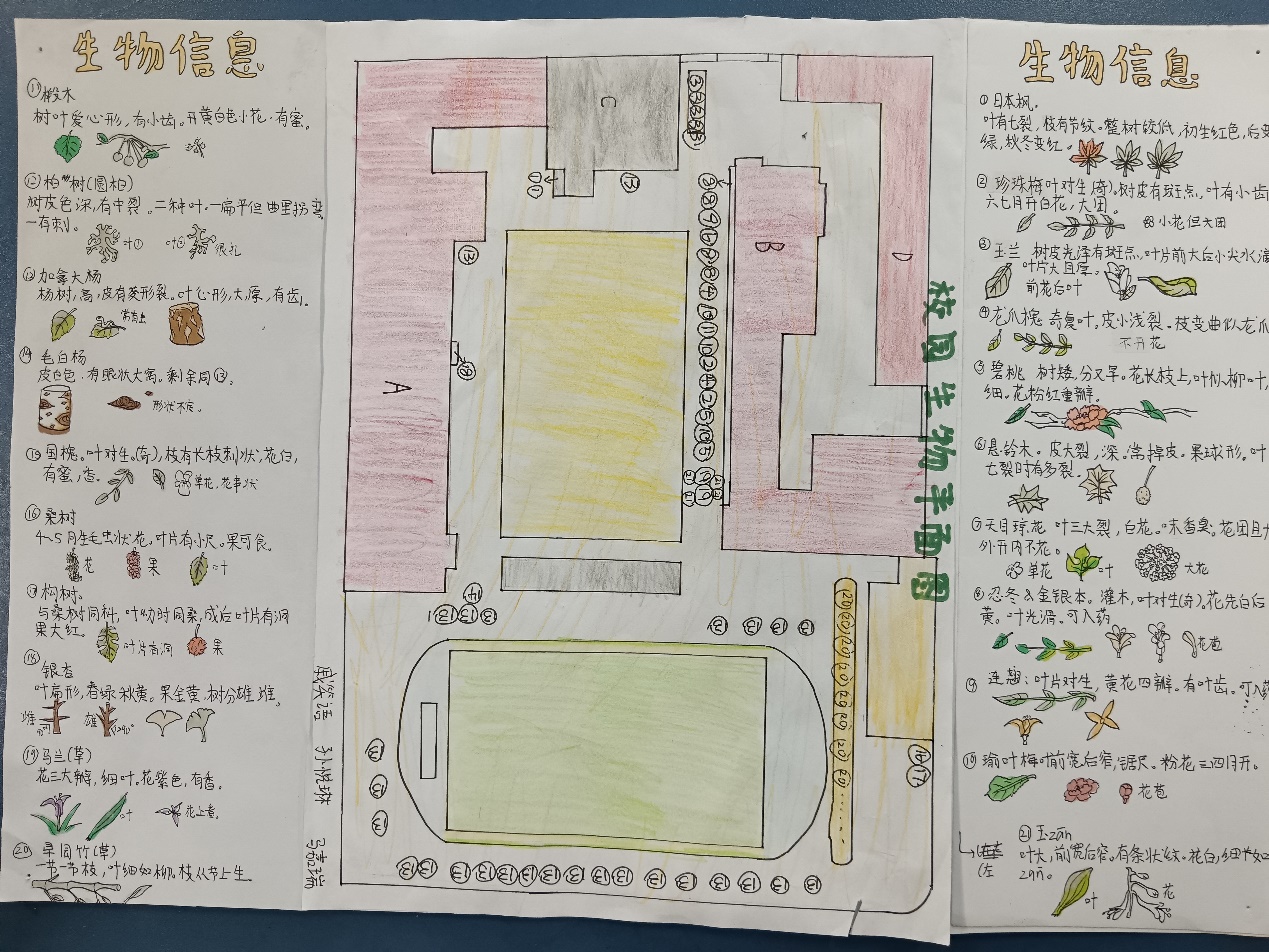 生物信息
⑪椴木
树叶爱心形，有小齿。开黄白色小花。有蜜。
树皮色深，有中裂。二种叶。一扁平但曲里拐弯
一有刺。
叶①
叶②
很扎
加拿大杨
杨树，高，皮有菱形裂。叶心形，大厚，有齿。
常有虫
⑭毛白杨
皮白色，有眼状大窝。剩余同⑬。
形状不定。
国槐。叶对生(奇)，枝有长枝刺状，花白，
有蜜，香。
单花，花串状
⑯桑树
花
果
叶
⑰构树。
与桑树同科，叶幼时同桑，成后叶片有洞
果大红。
叶片有洞
果
⑱
银杏
叶扇形，春绿秋黄。果金黄，树分雄雌。
雄
⑲马兰(草)
花三大瓣，细叶。花紫色，有香。
叶
⑳早园竹(草)
一节一节枝，叶细如柳。枝从节上生
校园生物平面图
A
B
C
D
⑬
⑭
生物信息
①日本枫。
叶有七裂，枝有节纹。整树较低，初生红色，后变
绿，秋冬变红。
②珍珠梅 叶对生(奇)。树皮有斑点，叶有小齿
六七月开白花，大团。
小花但大团
③玉兰 树皮光泽有斑点，叶片前大后小尖水滴
叶片大且厚。
前花后叶
④龙爪槐 奇复叶，皮小浅裂。枝变曲似龙爪
不开花
⑤碧桃 树矮，分叉早。花长枝上，叶似柳叶，
细。花粉红重瓣。
⑥悬铃木。皮大裂，深。常掉皮。果球形。叶
七裂时有多裂。
⑦天目琼花 叶三大裂，白花。味香臭。花团且大
外开内不花。
单花
叶
大花
⑧忍冬&金银木。灌木，叶对生(奇)。花先白后
黄。叶光滑。可入药
花苞
连翘：叶片对生，黄花四瓣。有叶齿。可入药
⑩榆叶梅 叶前宽后窄，锯尺。粉花三四月开。
花苞
㉑玉zān
叶大，前宽后窄。有条状纹。花白，细长如
zān。
叶
花